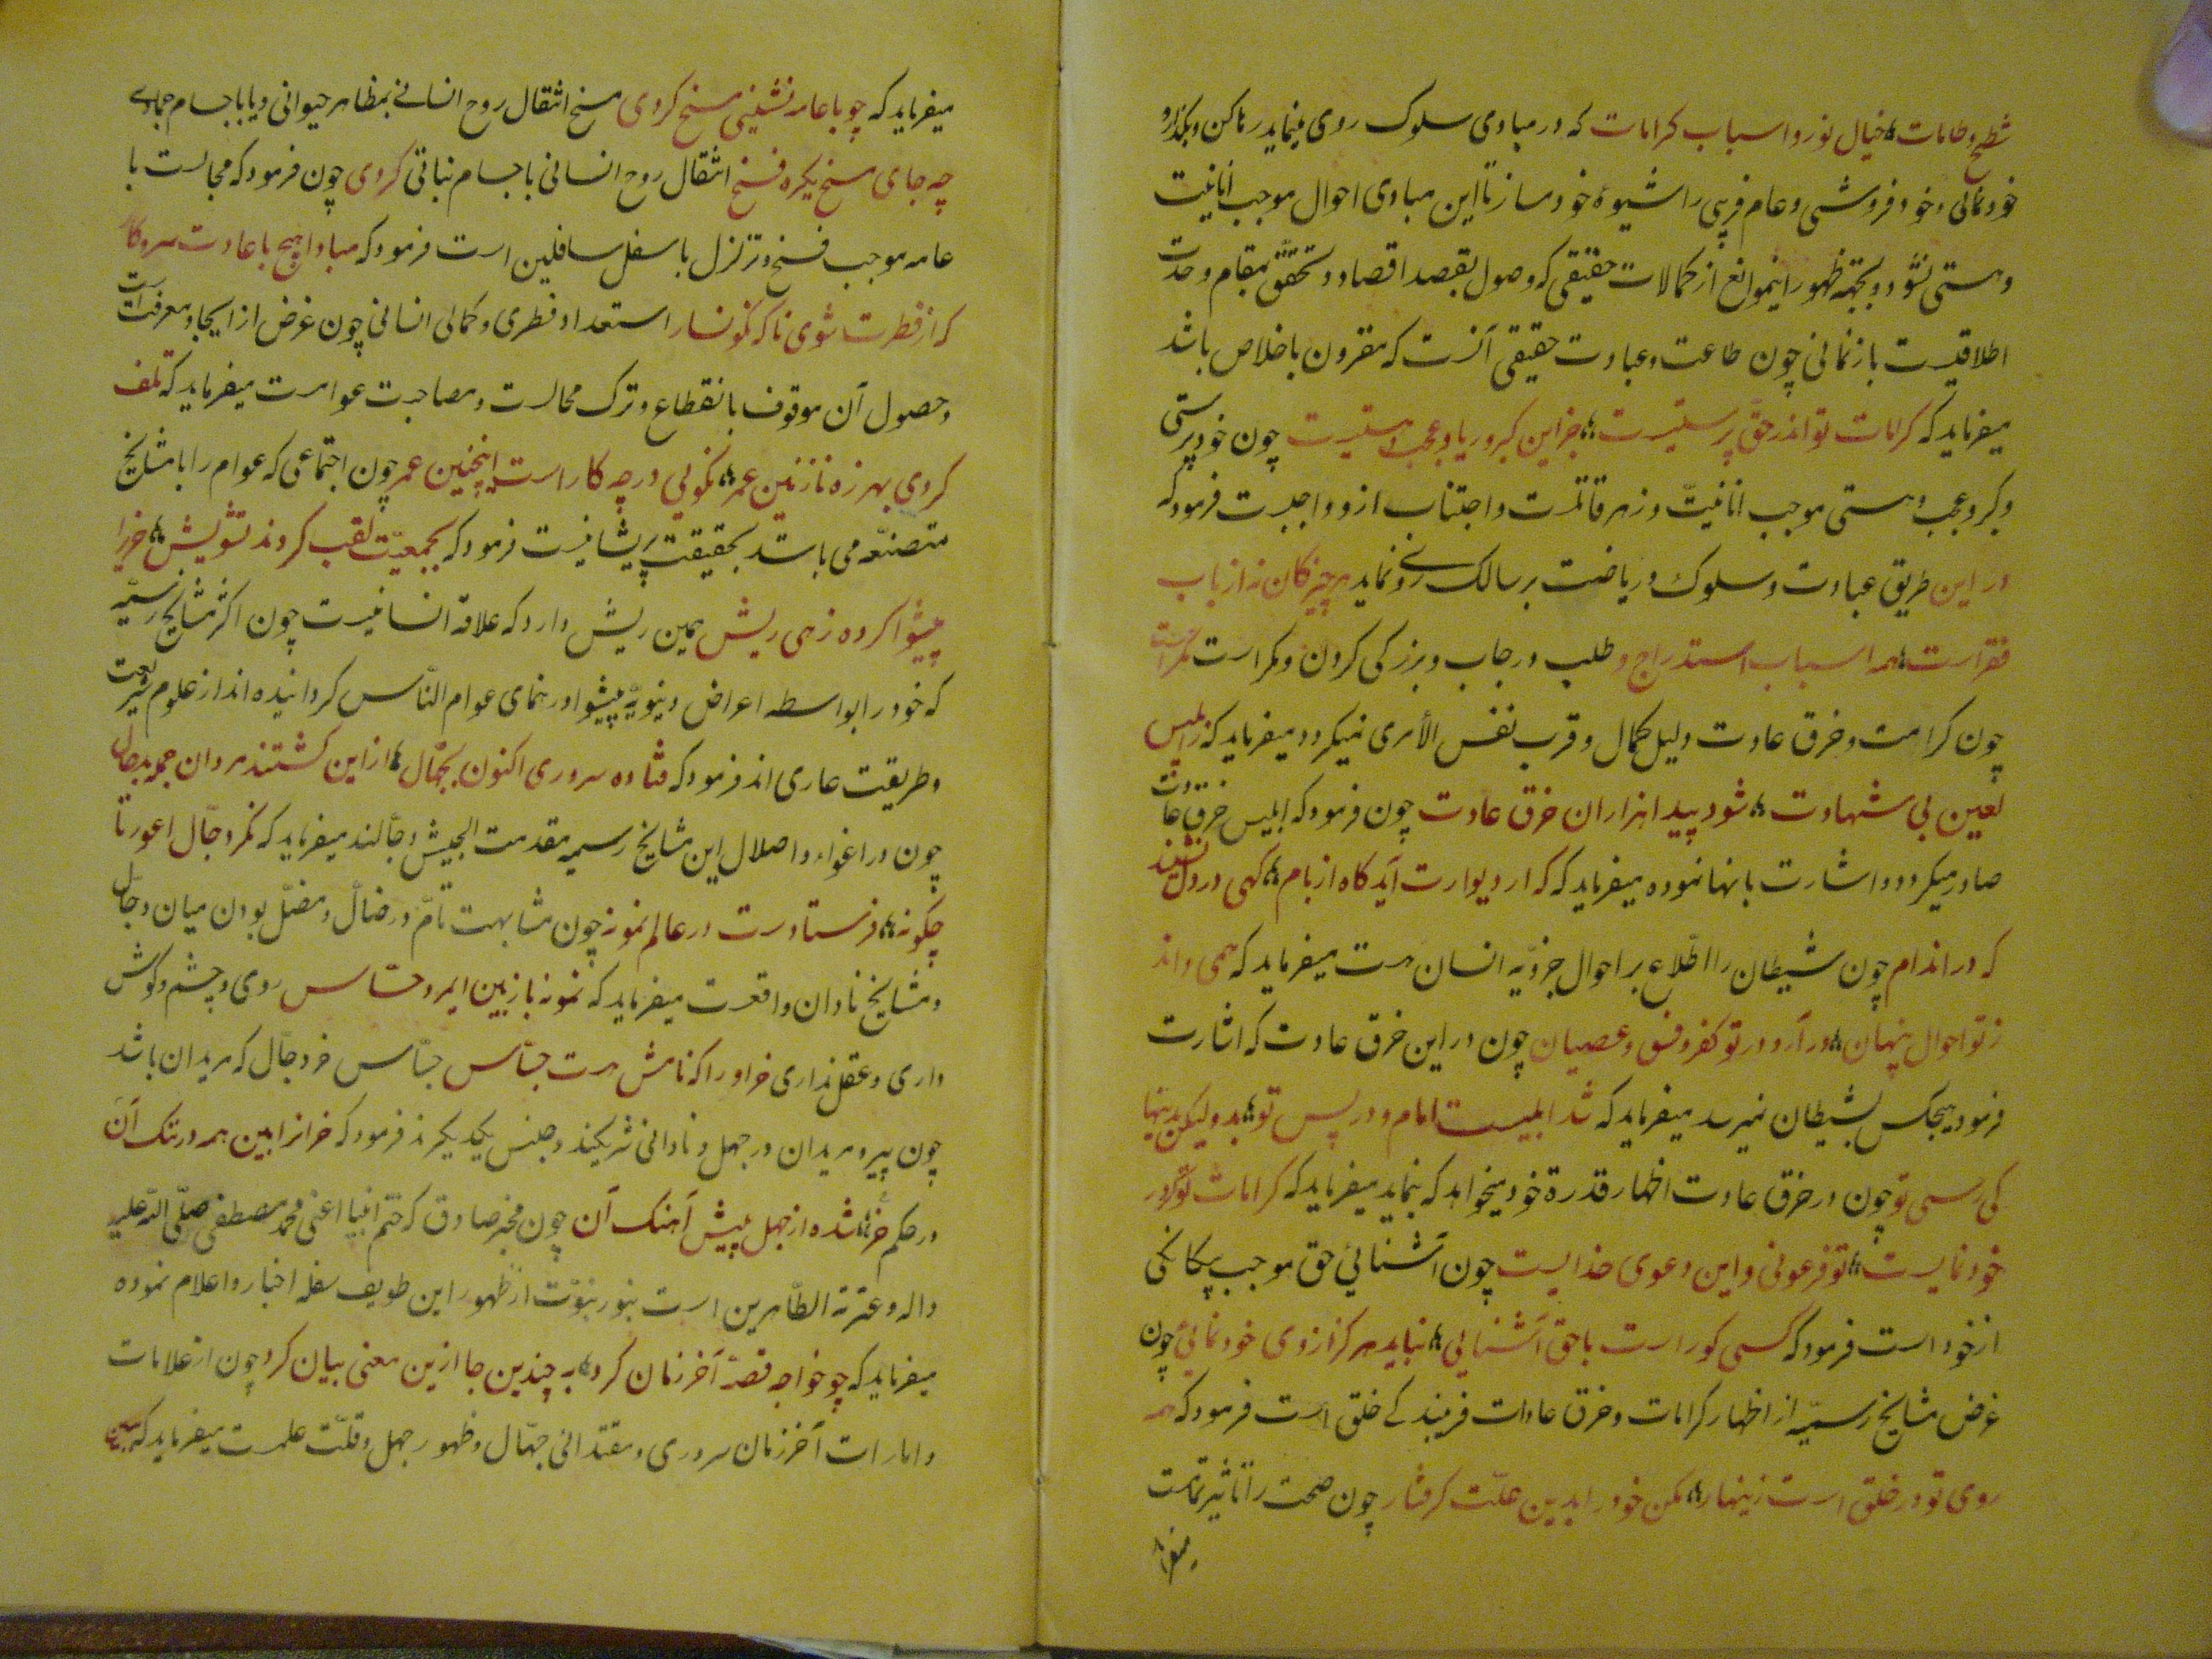 شطح و طامات خیال نور و اسباب کرامات که در مبادی سلوک روی مینماید رها کن و بگذار و
خودنمائی و خودفروشی و عام فریبی را شیوهٔ خود مساز تا این مبادی احوال موجب انانیت
و هستی نشود و بجهة ظهور این موانع از کمالات حقیقی که وصول بقصد اقصا و تحقق بمقام وحدت
اطلاقیست بازنمانی چون طاعت و عبادت حقیقی آنست که مقرون باخلاص باشد
میفرماید که کرامات تو اندر حق پرستیست جز این کبر و ریا و عجب و هستیست چون خودپرستی
و کبر و عجب و هستی موجب انانیت و زهر قاتلست و اجتناب ازو واجبست فرمود که
در این طریق عبادت و سلوک و ریاضت بر سالک روی نماید هر چیز کان نه از باب
فقرست همه اسباب استدراج و طلب درجات و بزرگی کردن و مکرست مکر است
چون کرامت و خرق عادت دلیل کمال و قرب نفس الأمری نمیگردد میفرماید که ز ابلیس
لعین بی شهادت شود پیدا هزاران خرق عادت چون فرمود که ابلیس خرق عادت
صادر میگردد و اشارت بانها نموده میفرماید که که از دیوارت آید گاه از بام گهی در دل نشیند
که در اندام چون شیطان را اطلاع بر احوال جزویه انسان هست میفرماید که همی داند
ز تو احوال پنهان در آرد در تو کفر و فسق و عصیان چون در این خرق عادت که اشارت
فرمود هیچکس بشیطان نمیرسد میفرماید که شد ابلیست امام و در پس تو بدو لیکن بدینها
کی رسی تو چون در خرق عادت اظهار قدرة خود میخواهد که بنماید میفرماید که کرامات تو گر در
خودنمایست تو فرعونی و این دعوی خدایست چون آشنائی حق موجب بیگانگی
از خود است فرمود که کسی کو راست با حق آشنایی نیاید هرگز از وی خودنمائی چون
غرض مشایخ رسمیّه از اظهار کرامات و خرق عادات فریبندگی خلق است فرمود که همه
روی تو در خلق است زینهار مکن خود را بدین علّت گرفتار چون صحبت را تأثیر تمامست
میفرماید که چو با عامه نشینی مسخ کردی مسخ انتقال روح انسانی بمظاهر حیوانی و یا باجسام جمادی
چه جای مسخ یکره فسخ انتقال روح انسانی باجسام نباتی کردی چون فرمود که مجالست با
عامه موجب فسخ و تنزل باسفل سافلین است فرمود که مبادا هیچ با عادت سروکار
که از فطرت شوی ناگه نگونسار استعداد فطری و کمالی انسانی چون غرض از ایجاد معرفتست
و حصول آن موقوف بانقطاع و ترک مجالست و مصاحبت عوامست میفرماید که تلف
کردی بهرزه نازنین عمر نگویی در چه کار است اینچنین عمر چون اجتماعی که عوام را با مشایخ
متصنّعه می باشد بحقیقت پریشانیست فرمود که بجمعیّت لقب کردند تشویش خری را
پیشوا کرده زهی ریش همین ریش دارد که علاقه انسانیست چون اکثر مشایخ رسمیّه
که خود را بواسطه اعراض دنیویّه پیشوا و رهنمای عوام النّاس گردانیده اند از علوم شریعت
و طریقت عاری اند فرمود که فتاده سروری اکنون بجهّال از این گشتند مردان جمله بدحال
چون در اغواء و اضلال این مشایخ رسمیه مقدمت الجیش دجّالند میفرماید که نگر دجّال اعور تا
چگونه فرستادست در عالم نمونه چون مشابهت تامّ در ضالّ و مضلّ بودن میان دجّال
و مشایخ نادان واقعست میفرماید که نمونه باز بین ای مرد حسّاس روی و چشم و گوش
داری و عقل نداری خر او را که نامش هست جسّاس جسّاس خر دجّال که مریدان باشد
چون پیر و مریدان در جهل و نادانی شریکند و جنس یکدیگرند فرمود که خران را بین همه در تنگ آن
در حکم خر شده از جهل پیش آهنگ آن چون مخبر صادق که ختم انبیا اعنی محمد مصطفی صلّی اللّه علیه
و اله و عترته الطّاهرین است بنور نبوّت از ظهور این طوایف سفله اخبار و اعلام نموده
میفرماید که چو خواجه قصّهٔ آخر زمان کرد به چندین جا ازین معنی بیان کرد چون از علامات
و امارات آخر زمان سروری و مقتدائی جهّال و ظهور جهل و قلّت علمست میفرماید که ببین